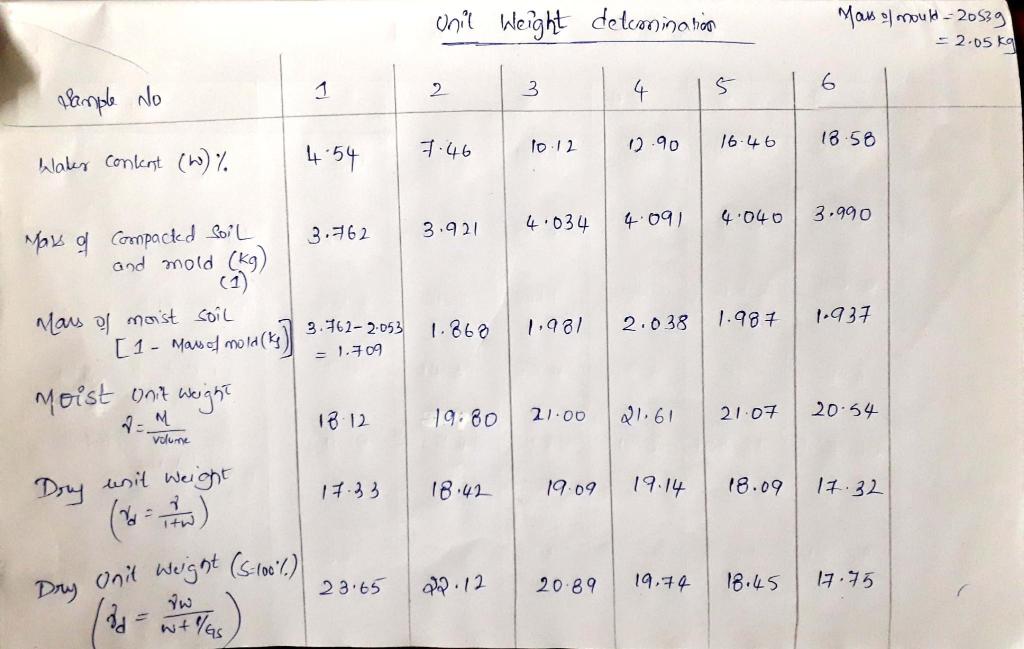 Unit Weight determination
Mass of mould = 2053g
= 2.05 kg
Sample No 1 2 3 4 5 6
Water Content (w) % 4.54 7.46 10.12 12.90 16.46 18.58
Mass of Compacted Soil 3.762 3.921 4.034 4.091 4.040 3.990
and mold (kg)
(1)
Mass of moist soil 3.762-2.053 1.868 1.981 2.038 1.987 1.937
[1 - Mass of mold (kg)] = 1.709
Moist Unit Weight 18.12 19.80 21.00 21.61 21.07 20.54
γ = M/Volume
Dry unit weight 17.33 18.42 19.09 19.14 18.09 17.32
(γd = γ/1+w)
Dry Unit Weight (S=100%) 23.65 22.12 20.89 19.74 18.45 17.75
(γd = γw/w+1/Gs)